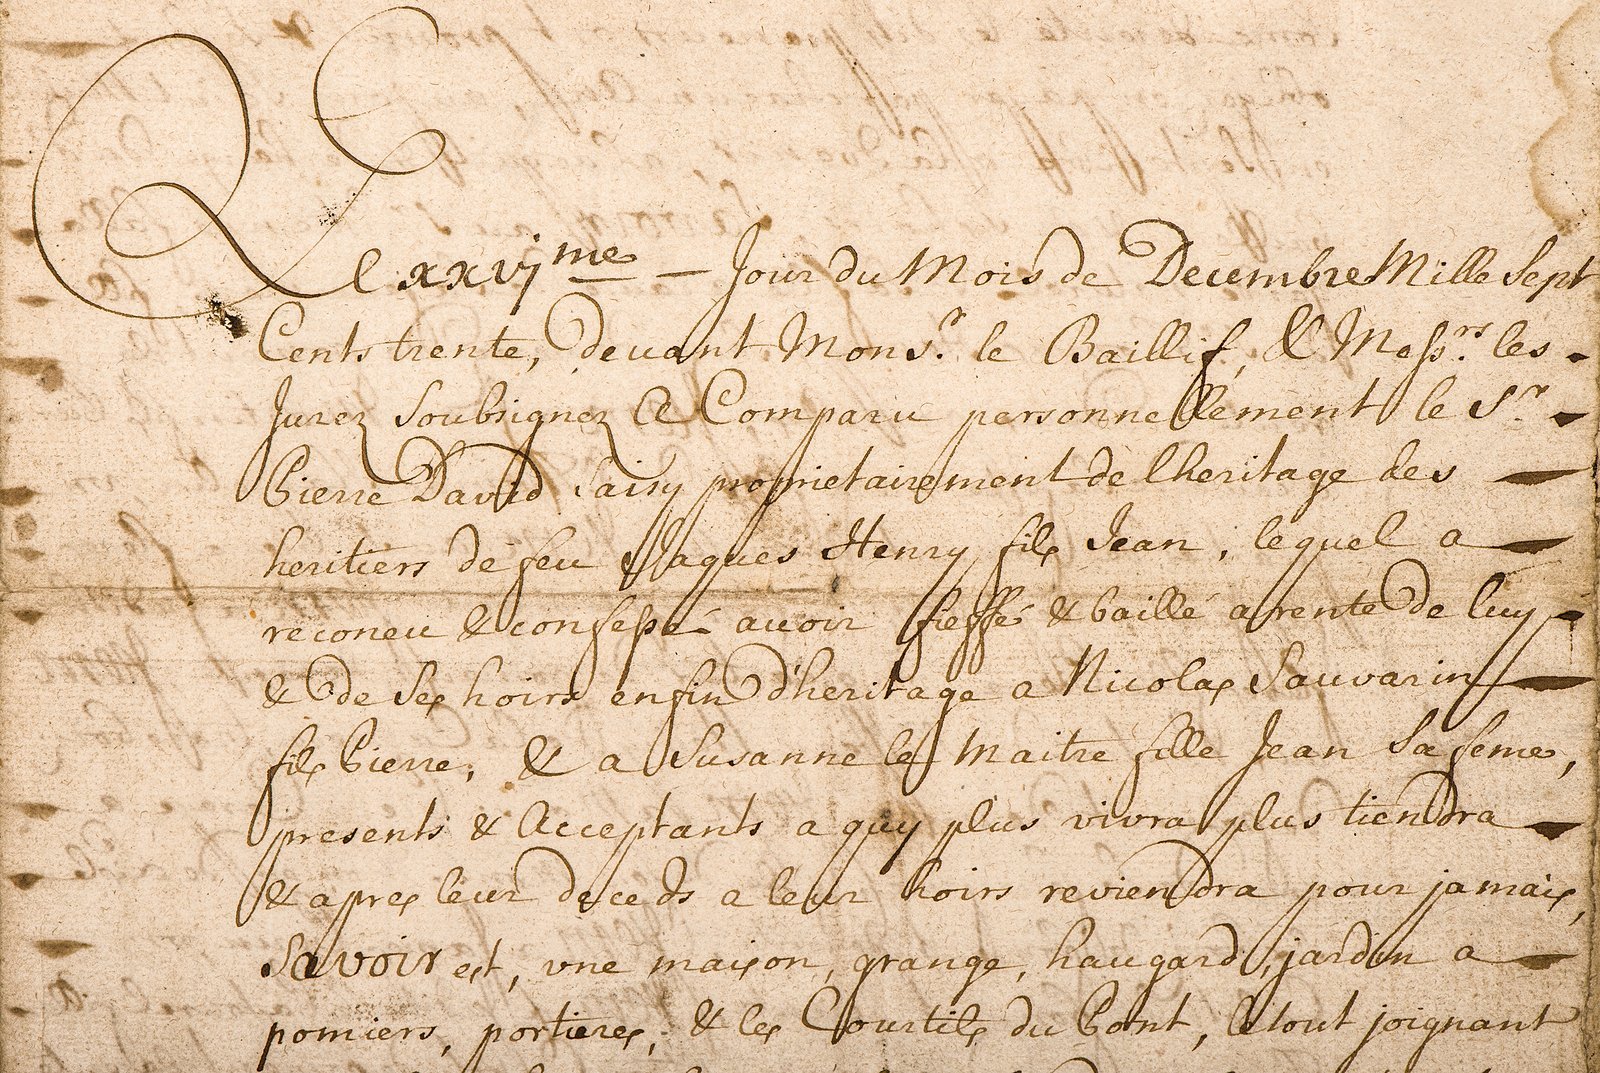 Le xxvj me — Jour du Mois de Decembre Mille Sept
Cents trente, devant Mons.r le Baillif, & Mess.rs les
Jurez Soubsignez Est Comparu personnellement le Sr
Pierre David Saisy proprietairement de lheritage des
heritiers de feu Jaques Henry fils Jean, lequel a
reconeu & confessé avoir fieffé & baillé a rente de luy
& de ses hoirs enfin d'heritage a Nicolas Sauvarin
fils Pierre, & a Susanne le Maitre fille Jean Sa feme,
presents & Acceptants a quy plus vivra plus tiendra
& apres leur deceds a leur hoirs reviendra pour jamais,
Savoir est, une maison, grange, haugard, jardin a
pomiers, portieres, & les Courtils du Pont, le tout joignant